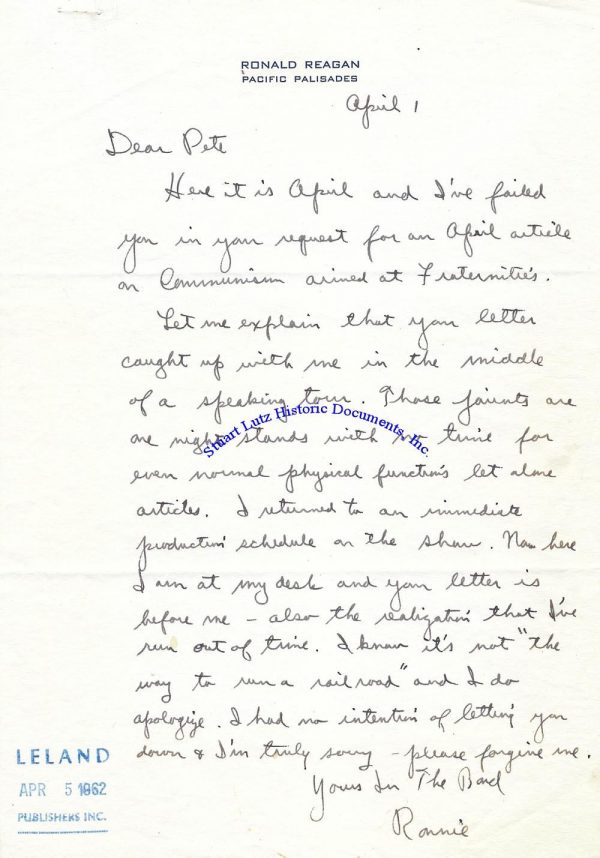 RONALD REAGAN
PACIFIC PALISADES
April 1
Dear Pete
Here it is April and I've failed
you in your request for an April article
on Communism aimed at Fraternities.
Let me explain that your letter
caught up with me in the middle
of a speaking tour. Those jaunts are
one night stands with no time for
even normal physical functions let alone
articles. I returned to an immediate
production schedule on the show. Now here
I am at my desk and your letter is
before me - also the realization that I've
run out of time. I know it's not "the
way to run a railroad" and I do
apologize. I had no intention of letting you
down & I'm truly sorry - please forgive me.
Yours In The Bond
Ronnie
Stuart Lutz Historic Documents, Inc.
LELAND
APR 5 1962
PUBLISHERS INC.